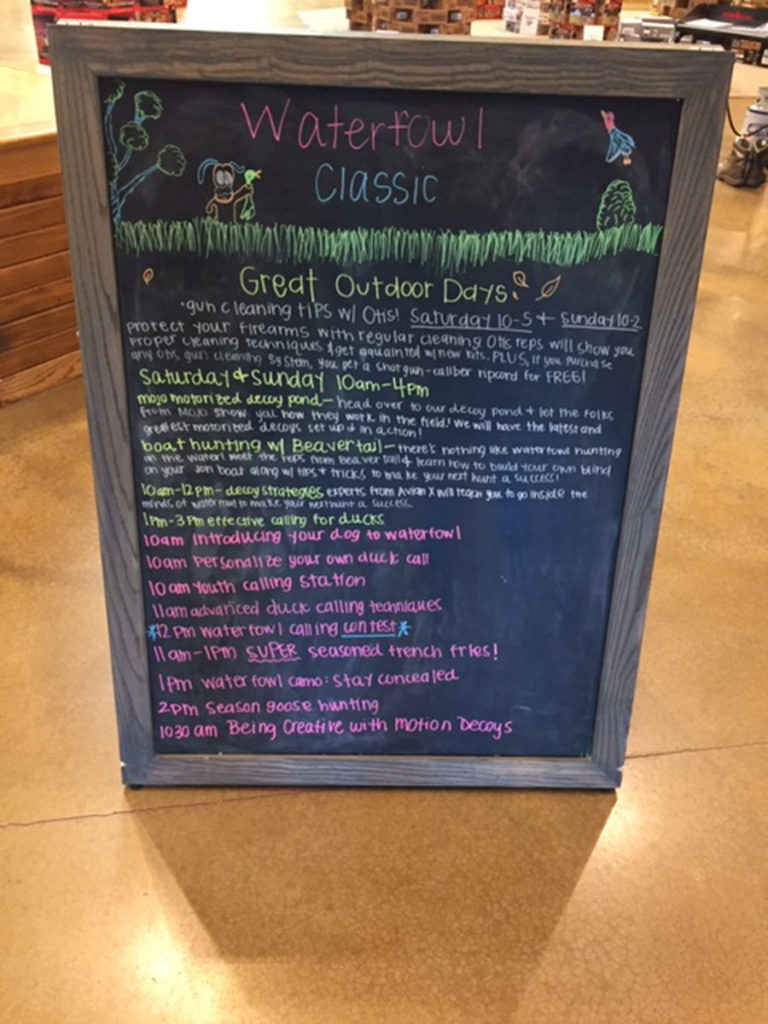 Waterfowl
Classic
Great Outdoor Days
•gun cleaning tips w/ Otis! Saturday 10-5 + Sunday 10-2
protect your firearms with regular cleaning Otis reps will show you
proper cleaning techniques & get aquainted w/ new kits. PLUS, if you purchase
any otis gun cleaning system, you get a shotgun-caliber ripcord for FREE!
Saturday & Sunday 10am-4pm
mojo motorized decoy pond- head over to our decoy pond + let the folks
from Mojo show you how they work in the field! We will have the latest and
greatest motorized decoys set up + in action!
boat hunting w/ Beavertail- there's nothing like waterfowl hunting
on the water! meet the reps from Beavertail & learn how to build your own blind
on your Jon boat along w/ tips + tricks to make your next hunt a success!
10am-12pm- decoy strategies experts from Avian X will teach you to go inside the
minds of waterfowl to make your next hunt a success.
1pm-3pm effective calling for ducks
10am introducing your dog to waterfowl
10am Personalize your own duck call
10am Youth calling station
11am advanced duck calling techniques
*12pm waterfowl calling contest*
11am-1pm SUPER seasoned french fries!
1pm waterfowl camo: stay concealed
2pm Season goose hunting
1030 am Being Creative with Motion Decoys